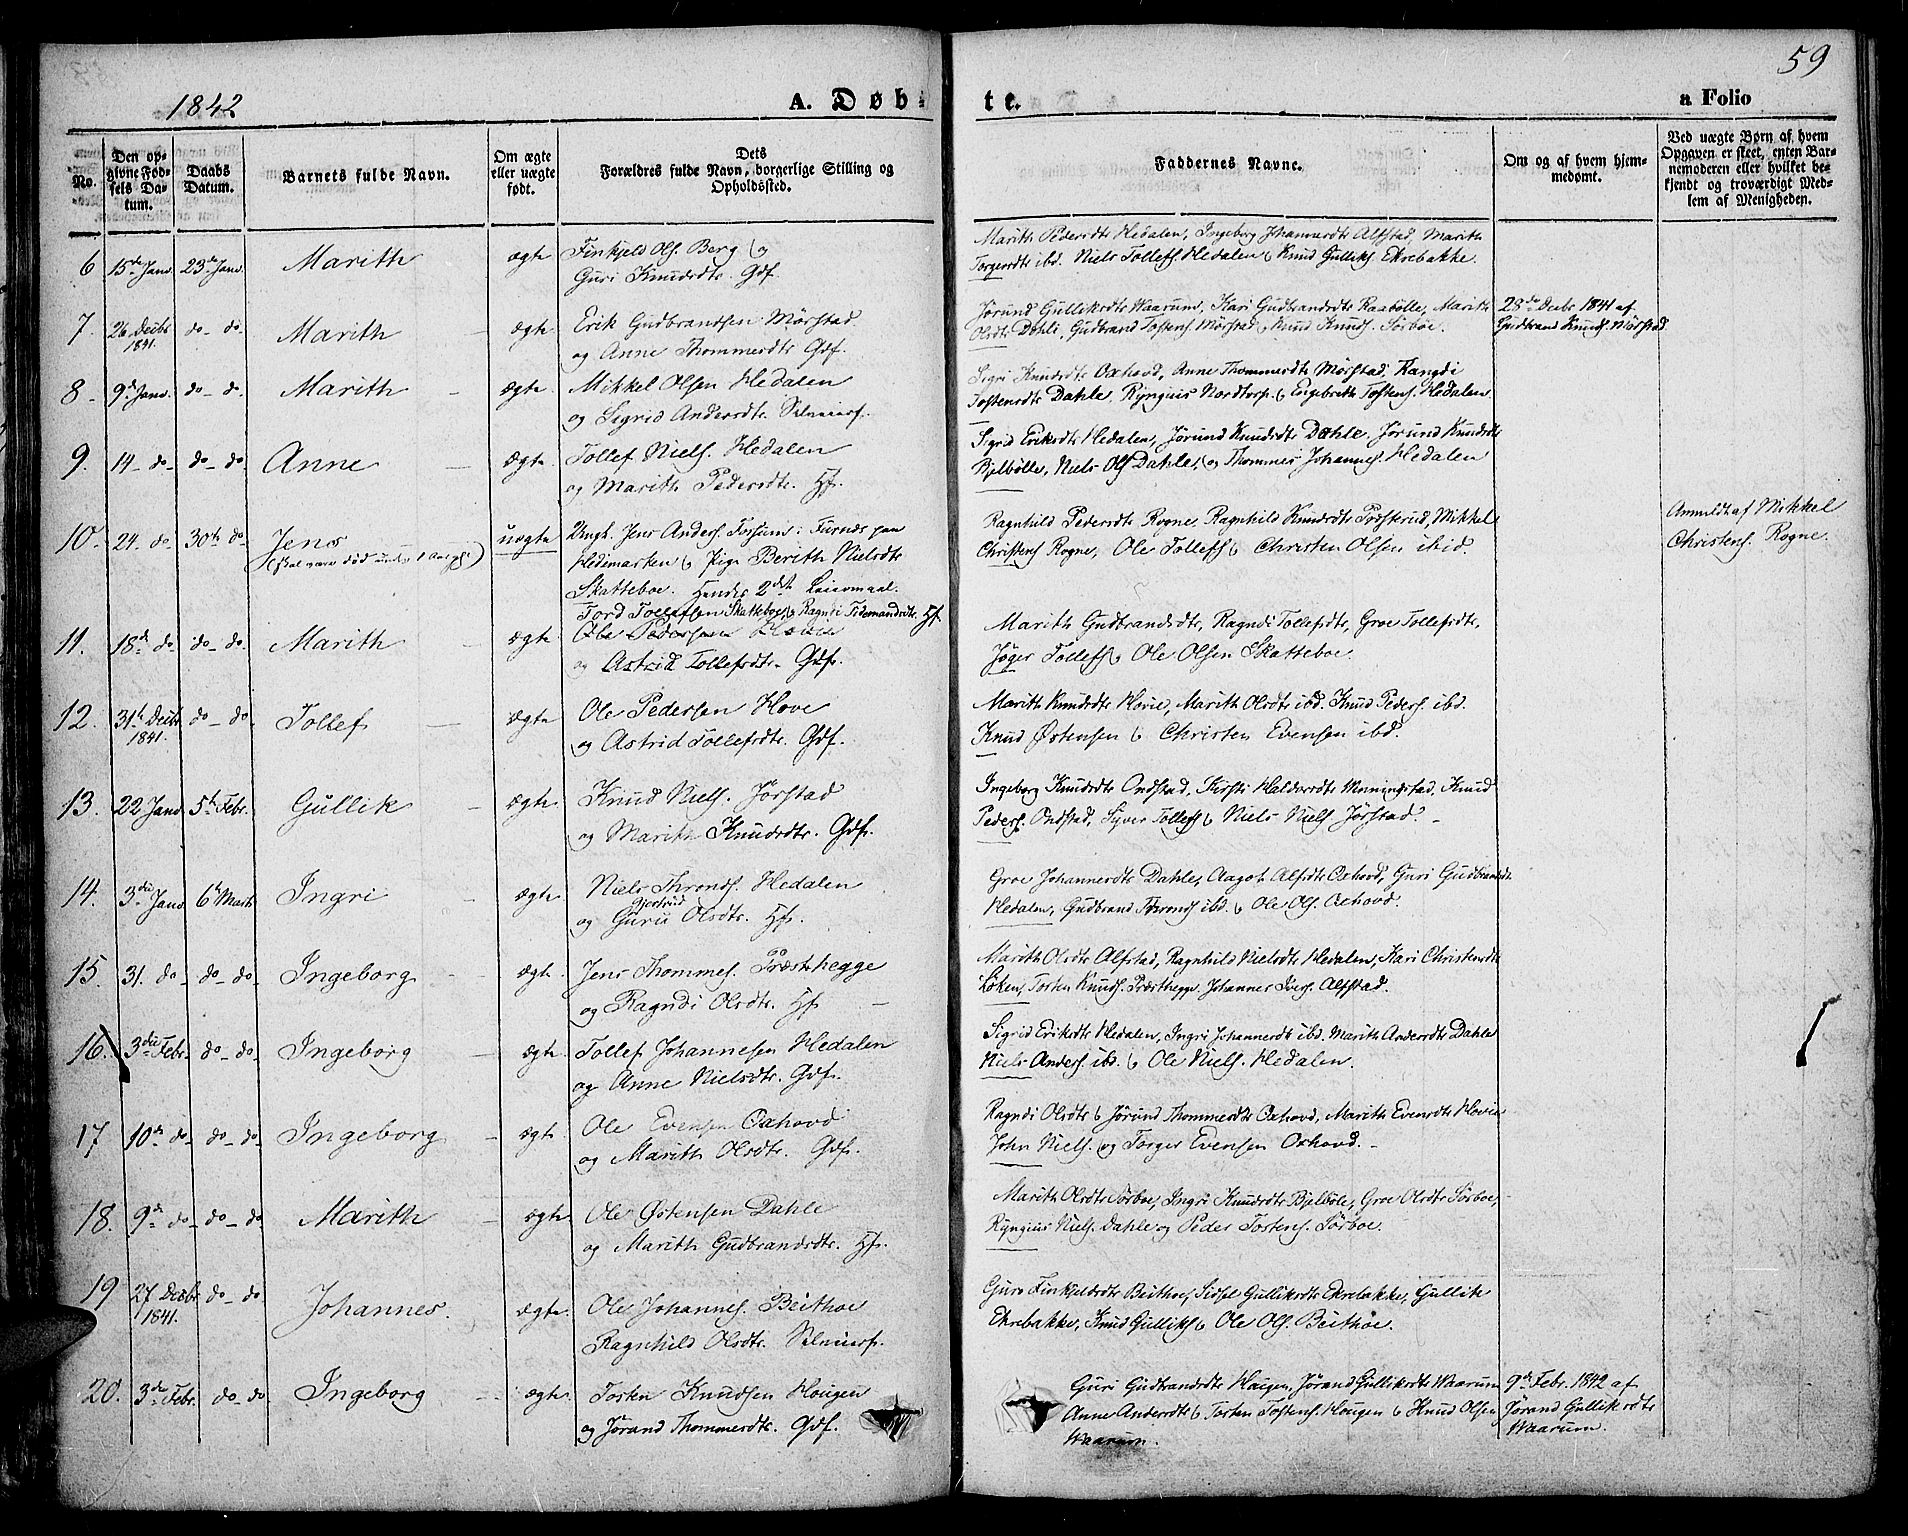 59
1842
A. Døb-
te.
a Folio
No.
Den op-
givne Fød-
sels Da-
tum.
Daabs
Datum.
Barnets fulde Navn.
Om ægte
eller uægte
født.
Dets
Forældres fulde Navn, borgerlige Stilling og
Opholdssted.
Faddernes Navne.
Om og af hvem hjem-
medømt.
Ved uægte Børn af hvem
Opgaven er skeet, enten Bar-
nemoderen eller hvilket be-
kjendt og troværdigt Med-
lem af Menigheden.
6 15de Janv. 23de Janv. Marith ægte Finkjeld Ols. Berg og
Guri Knudsdtr. Gdf.
Marith Pedersdtr Hedalen, Ingeborg Johannesdtr Alfstad, Marith
Torgersdtr ibd. Niels Tollefs Hedalen & Knud Gulliks. Ekrebakke.
7. 26 Decbr 1841. do - do. Marith ægte Erik Gudbrandsen Mørstad
og Anne Thommesdtr Gdf.
Jørund Gulliksdtr Waarum, Kari Gudbrandsdtr Raabølle, Marith
Olsdtr Dahli, Gudbrand Tostens. Mørstad & Knud Knuds. Sørbøe.
28de Decbr 1841 af
Gudbrand Knuds. Mørstad.
8 - 9de Janv. do - do. Marith ægte Mikkel Olsen Hedalen
og Sigrid Andersdtr. Selveiersf.
Sigri Knudsdtr Oxhovd, Anne Thommesdtr Mørstad, Rangdi
Tostensdtr Dahle. Ryngius Nordtorp. & Engebreth Tostens. Hedalen
9. 14 - do - do - do Anne ægte Tollef Niels. Hedalen
og Marith Pedersdtr. Hf.
Sigrid Eriksdtr Hedalen, Jørund Knudsdtr Dahle. Jørund Knudsdtr
Bjelbølle, Niels Ols Dahle, og Thommes Johannes. Hedalen
10. 24. do 30te do Jens
(skal være død under 1 Aar gl.)
uægte Ungk. Jens Anders. Forsum i Furnæs paa
Hedemarken & Pige Berith Nielsdtr
Skatteboe. Hendes 2det Leiermaal.
Ragnhild Pedersdtr Rogne, Ragnhild Knudsdtr Prøsterud, Mikkel
Christens Rogne, Ole Tollefs & Christen Olsen ibid.
Anmeldt af Mikkel
Christens. Rogne.
Tord Tollefsen Skatteboe & Ragndi Tidemandsdtr. Hf
11. 18de do do - do Marith ægte Ole Pedersen Hove
og Astrid Tollefsdtr. Gdf.
Marith Gudbrandsdtr, Ragndi Tollefsdtr, Groe Tollefsdtr,
Jøger Tollefs & Ole Olsen Skatteboe.
12. 31te Decbr 1841. do - do. Tollef ægte Ole Pedersen Hove
og Astrid Tollefsdtr. Gdf.
Marith Knudsdtr Hovie, Marith Olsdtr ibd. Knud Peders. ibd.
Knud Østensen & Christen Evensen ibd.
13. 22 Janv 5te Febr. Gullik ægte Knud Niels. Jørstad
og Marith Knudsdtr. Gdf.
Ingeborg Knudsdtr Ondstad, Kirsti Haldorsdtr Menningstad, Knud
Peders. Ondstad, Syver Tollefs & Niels Niels Jørstad. -
14. 3die Janv 6te Marts Ingri ægte Niels Thronds. Hedalen
Gjertrud
og Guru Olsdtr. Hf.
Groe Johannesdtr Dahle, Aagot Alfsdtr Oxhovd, Guri Gudbrandsdtr
Hedalen, Gudbrand Thronds ibd. & Ole Ols. Oxhovd.
15. 31. do - do - do Ingeborg ægte. Jens Thommes. Præsthegge
og Ragndi Olsdtr. Hf.
Marith Olsdtr Alfstad, Ragnhild Nielsdtr Hedalen, Kari Christensdtr
Løken, Torsten Knuds. Præsthegge. Johannes Ivers. Alfstad.
16. 3die Febr. do - do - Ingeborg ægte. Tollef Johannesen Hedalen
og Anne Nielsdtr. Gdf.
Sigrid Eriksdtr Hedalen, Ingri Johannesdt ibd. Marith Andersdtr Dahle
Niels Anders. ibd. & Ole Niels. Hedalen.
17. 10de do - do - do. Ingeborg ægte. Ole Evensen Oxhovd
og Marith Olsdtr. Gdf.
Ragndi Olsdtr & Jørund Thommesdtr Oxhovd, Marith Evensdtr Hovie
John Niels. og Torger Evensen Oxhovd. -
18. 9de do - do - do Marith ægte. Ole Østensen Dahle
og Marith Gudbrandsdtr. Hf.
Marith Olsdtr Sørboe, Ingri Knudsdtr Bjelbøle, Groe Olsdtr Sørboe,
Ryngius Niels. Dahle og Peder Tostens. Sørboe.
19 27 Decbr 1841. do - do. Johannes. ægte. Ole Johannes. Beithoe
Ragnhild Olsdtr. Selveiersf.
Guro Finkjelsdtr Beithoe, Sidsel Gulliksdtr Ekrebakke, Gullik
Ekrebakke, Knud Gulliks & Ole Ols. Beithoe.
20. 3die Febr. do - do. Ingeborg ægte. Torsten Knudsen Hougen
og Jørand Thommesdtr. Gdf.
Guri Gudbrandsdtr Hougen, Jørand Gulliksdtr Waarum
Anne Andersdtr & Torsten Tostens. Hougen & Knud Olsen
Waarum.
9de Febr. 1842 af
Jørand Gulliksdtr
Waarum.